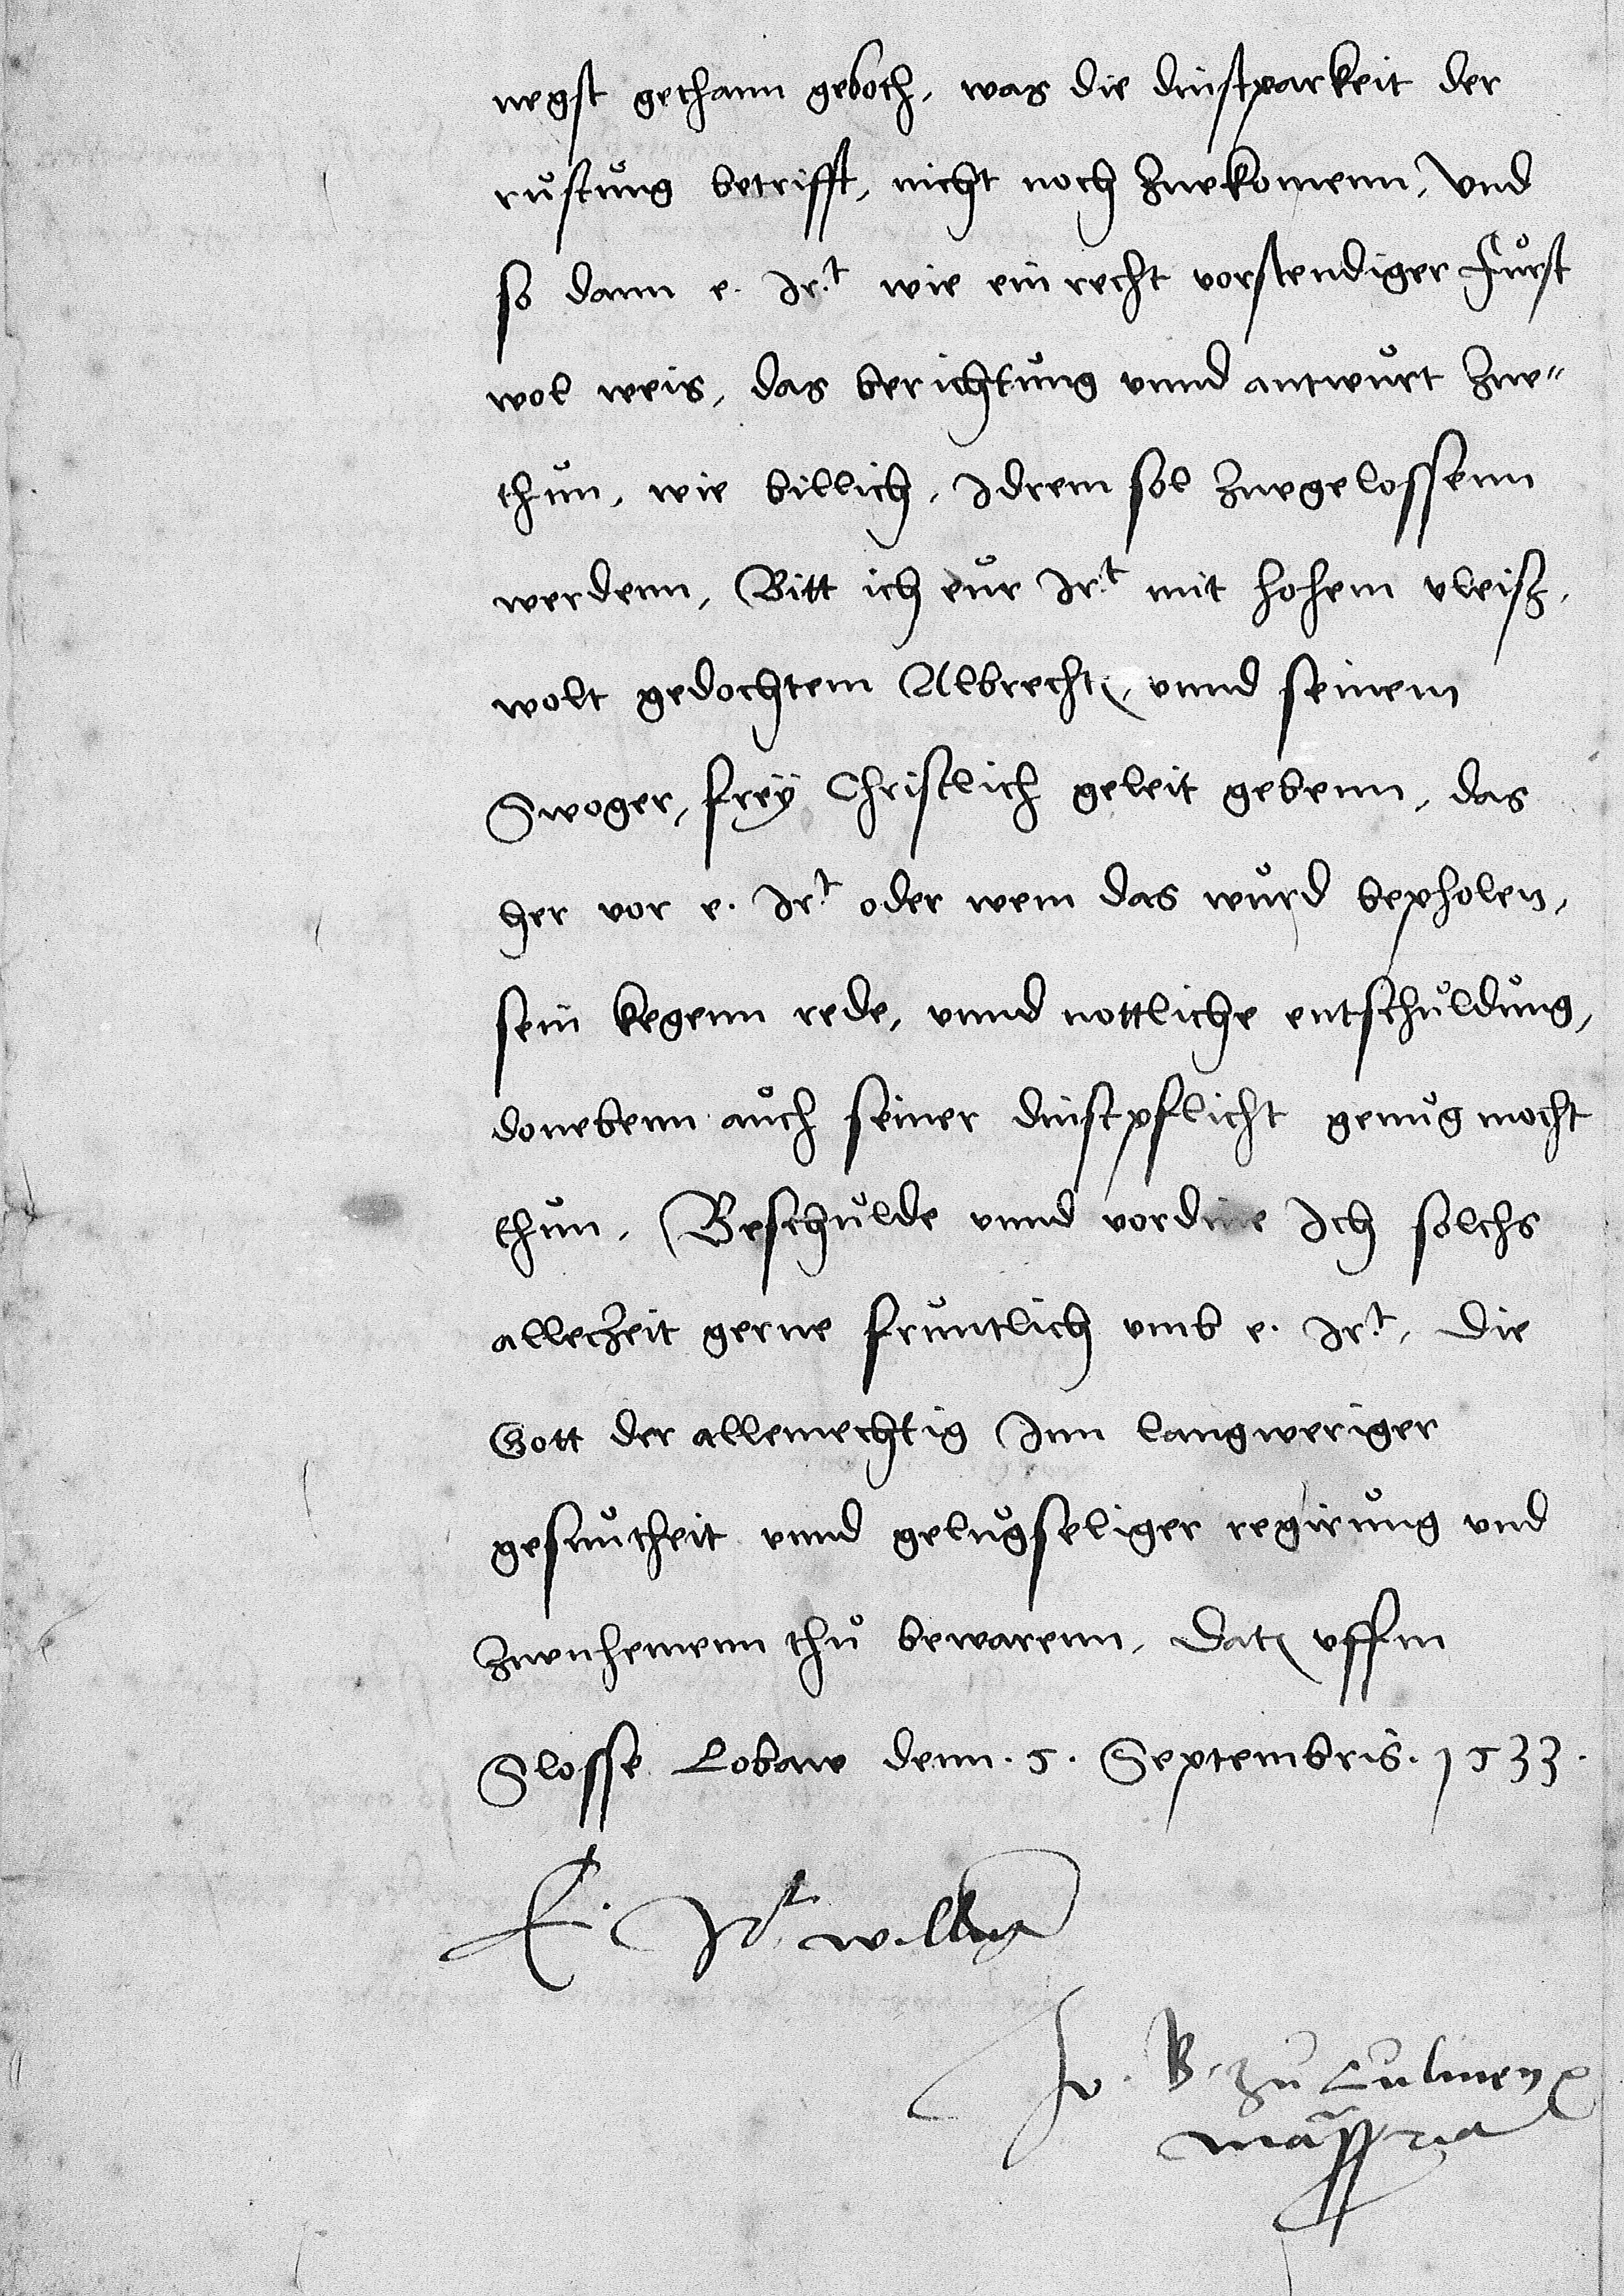 negst gethann geboth, was die dinstparkeit der
růstůng betrifft, nicht noch zuekomenn, Vnd
so dann e. Ir.t wie ein recht vorstendiger Fůrst
wol weis, das berichtůng vnnd antwůrt zue„
thůn, wie billich, Idrem sol zuegelossenn
werdenn, Bitt ich eůr Ir.t mit hohem vleiß,
wolt gedochtem Albrecht, vnnd seinem
Swoger, freÿ Christlich geleit gebenn, das
her vor e. Ir.t oder wem das wůrd bepholen,
sein kegenn rede, vnnd nottliche entschůldůng,
donebenn aůch seiner dinstpflicht genůg mocht
thůn, Beschůlde vnnd vordine Ich solchs
alleczeit gerne frůntlich vmb e. Ir.t, Die
Gott der allemechtig Inn langweriger
gesuntheit vnnd gelůgseliger regirůng vnd
zuenhemenn thů bewarenn, Dat vffm
Slosse Lobaw denn .5. Septembris. 1533.
E. Ir.t williger
Jo. B. zů Culmen
mappria